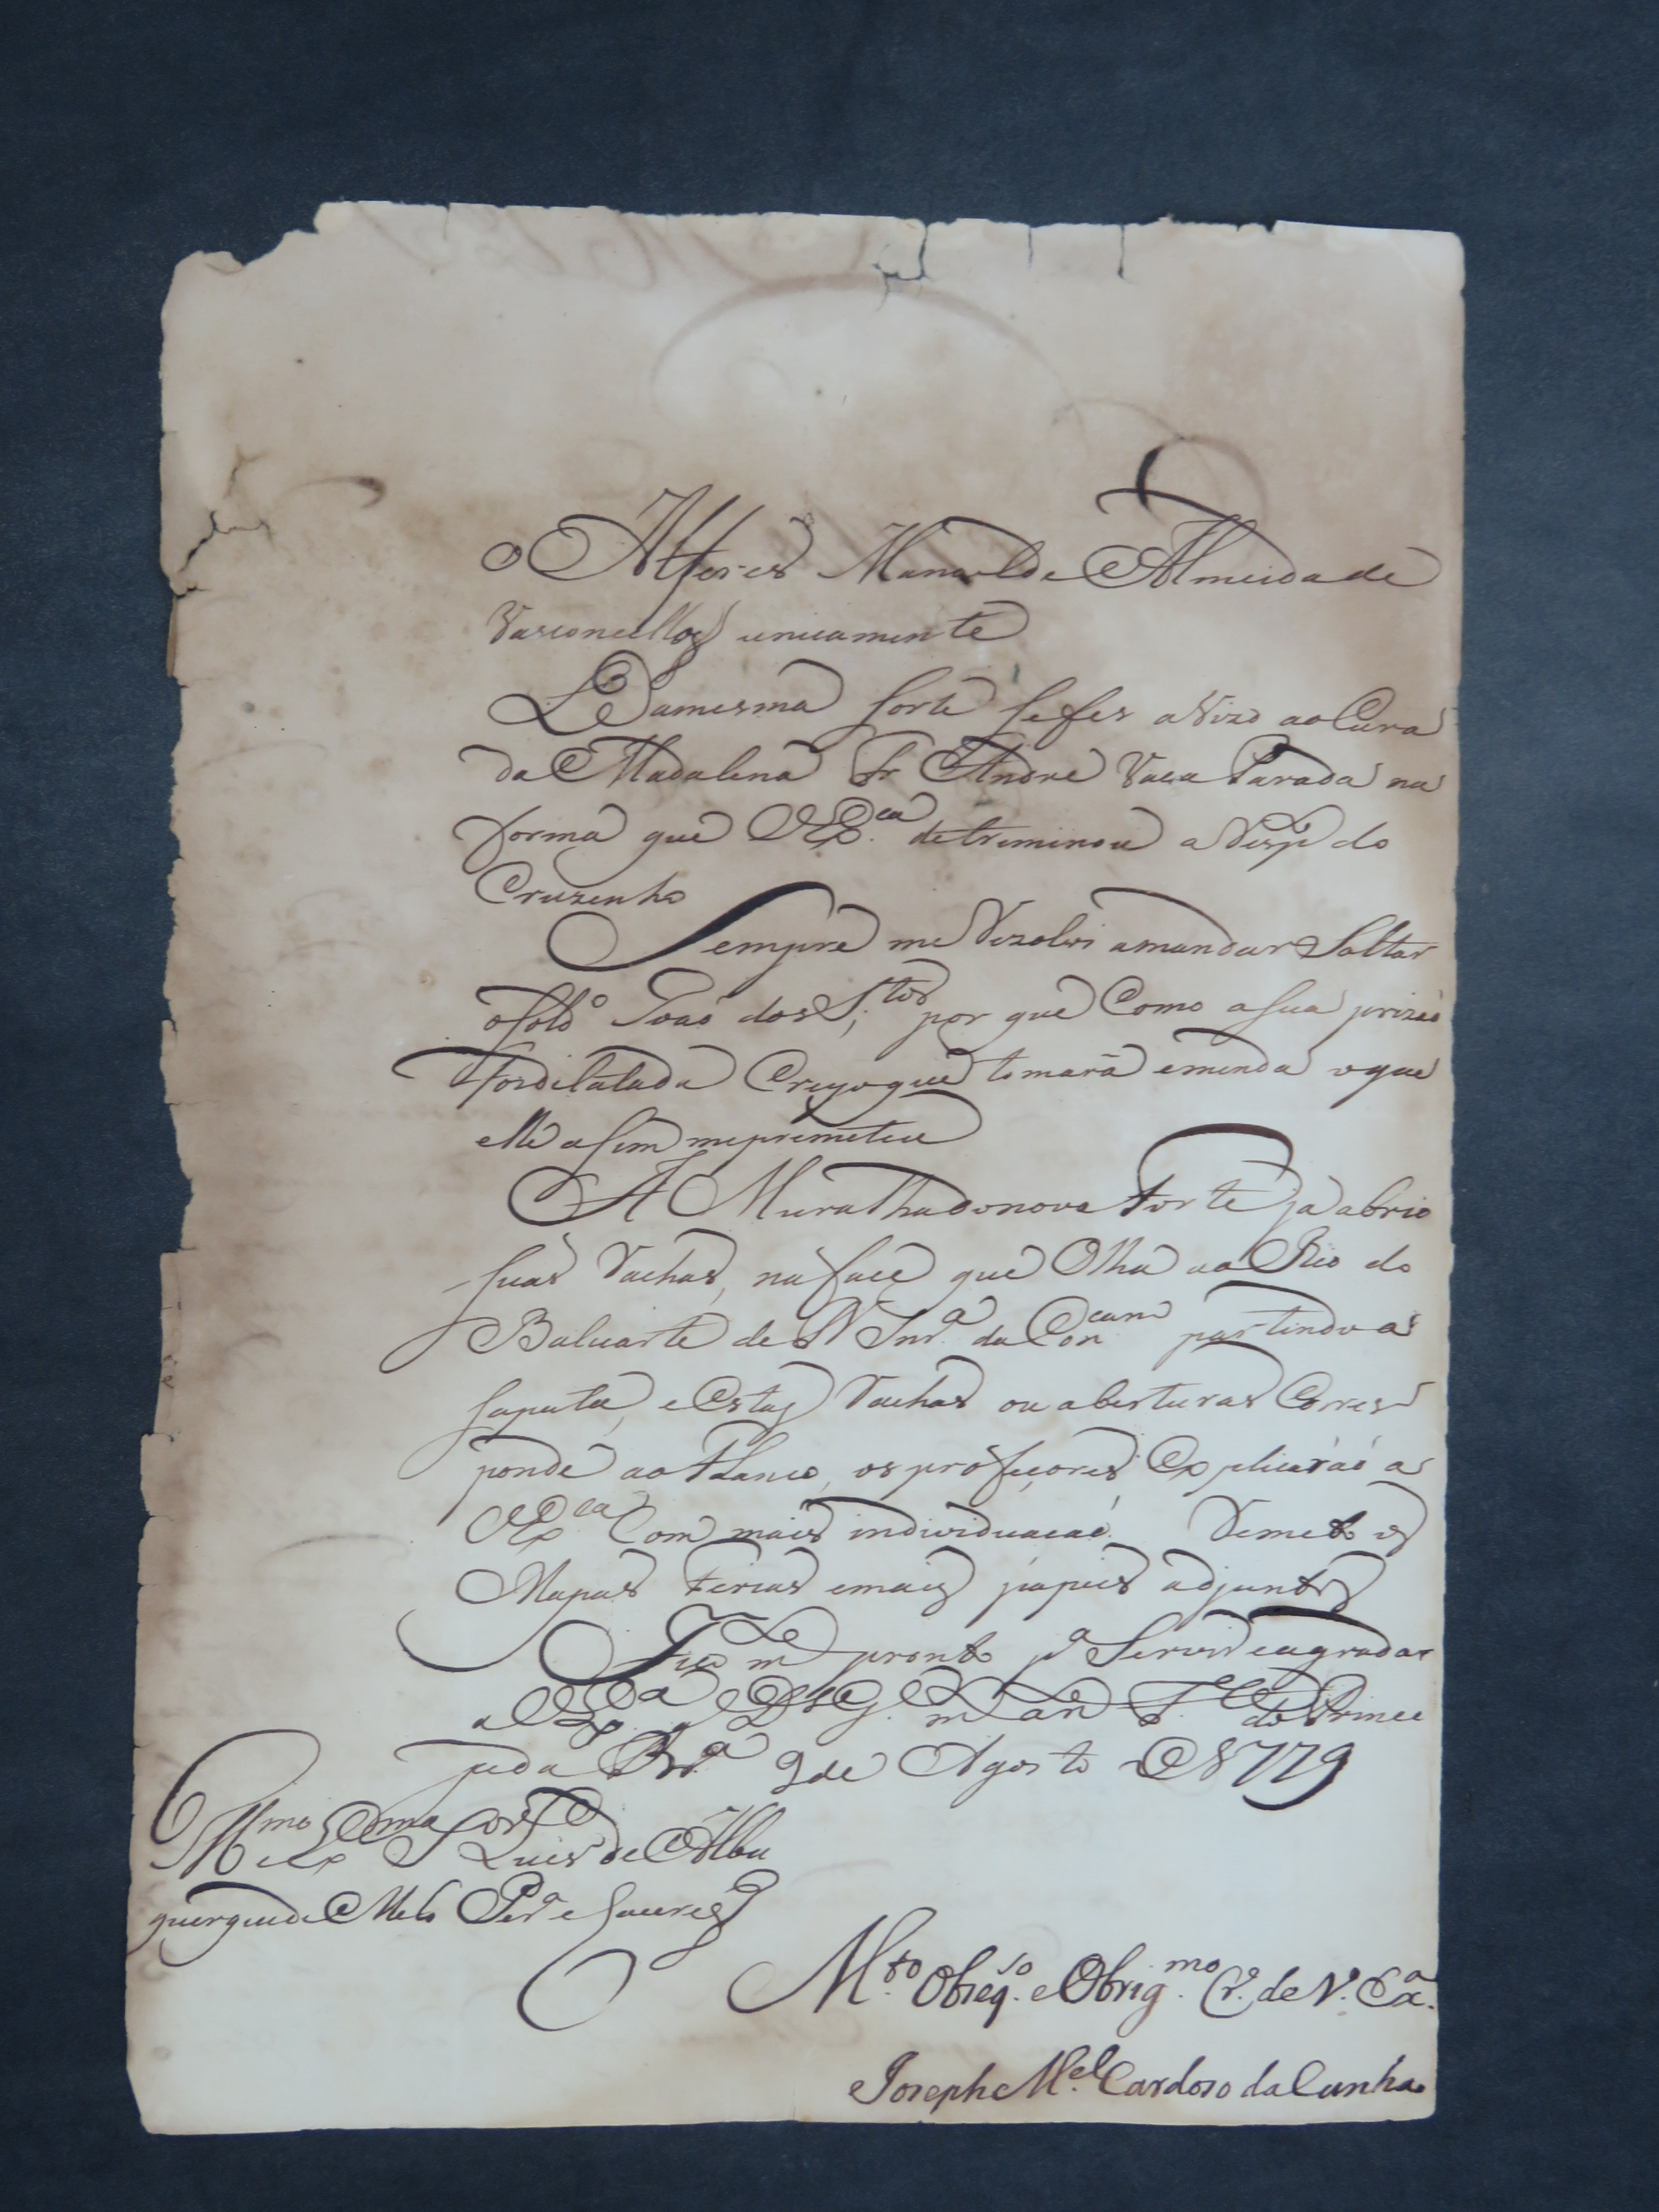 o Alferes Manoel de Almeida de
Vasconcellos unicamente
Da mesma sorte se fes avizo ao Cura
da Madalena Fr. Andre Vaca Parada na
forma que V Ex.ca detreminou a resp.to do
Cruzenho
Sempre me rezolvi amandar Soltar
o Sold.o Joaó dos S.tos por que Como a sua prizaó
foi dilatada Creyo que tomarâ emenda o que
elle asim me prometeu
A Muralha do novo Forte já abrio
suas rachas, na face que Olha ao Rio do
Baluarte de N Snr.a da Con.cam partindo a
sapata, e Estas rachas ou aberturas Corres
ponde ao Flanco, os profeçores Explicaráó a
V Ex.ca Com mais individuacaó. Remeto os
Mapas ferias e mais papeis adjuntos
Fico m.to pronto p.a Servir e agradar
a V Ex.a q D.s G.e m.s an.s F.te do Princi
pe da Br.a 9 de Agosto D 1779
Ill.mo e Ex.mo Snr. Luis de Albu
querque de Mello Per.a e Caceres
M.to Obzeq.so e Obrig.mo Cr.o de V. Ex.a
Joseph M.el Cardozo da Cunha